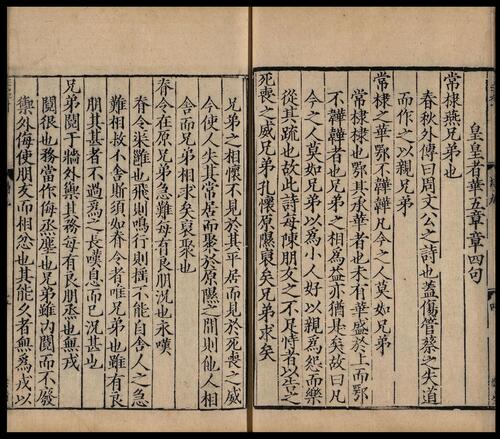 皇皇者華五章章四句
常棣燕兄弟也
春秋外傳曰周文公之詩也蓋傷管蔡之失道
而作之以親兄弟
常棣之華鄂不韡韡凡今之人莫如兄弟
常棣棣也鄂其承華者也未有華盛於上而鄂
不韡韡者也兄弟之相為益亦猶是矣故曰凡
今之人莫如兄弟以為小人好以親為怨而樂
從其疏也故此詩每陳朋友之不足恃者以告之
死喪之威兄弟孔懷原隰裒矣兄弟求矣
兄弟之相懷不見於其平居而見於死喪之威
今使人失其常居而聚於原隰之間則他人相
舍而兄弟相求矣裒聚也
脊令在原兄弟急難每有良朋況也永嘆
脊令渠雝也飛則鳴行則搖不能自舍人之急
難相救不舍斯須如脊令者唯兄弟也雖有良
朋其甚者不過為之長嘆息而已況甚也
兄弟鬩于牆外禦其務每有良朋烝也無戎
當作侮烝塵也兄弟雖內鬩而不發
禦外侮使朋友而相怨也其能久者無為戎以